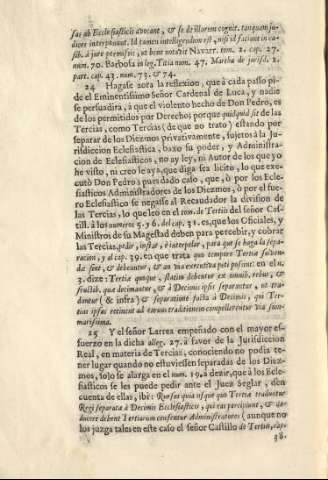 sas ab Ecclesiasticis avocant, & se de illorum cognit. tanquam ju-
dices interponunt. Id tamen intelligendum est, nisi id fuerit in ca-
sib. à jure permissis, ut bene notavit Navarr. tom. 2. cap. 27.
num. 70. Barbosa in leg. Titia num. 47. Martha de jurisd. 2.
part. cap. 43. num. 73. & 74.
24 Hagase aora la reflexion, que à cada passo pi-
de el Eminentissimo señor Cardenal de Luca, y nadie
se persuadira, à que el violento hecho de Don Pedro, es
de los permitidos por Derechos porque quidquid sit de las
Tercias, como Tercias (de que no trato) estando por
separar de los Diezmos privativamente, sujetos à la Ju-
risdiccion Eclesiastica, baxo su poder, y Administra-
cion de Eclesiasticos, no ay ley, ni Autor de los que yo
he visto, ni creo le aya, que diga sea licito, lo que exe-
cutò Don Pedro; pues dado caso, que, ò por los Ecle-
siasticos Administradores de los Diezmos, ò por el fue-
ro Eclesiastico se negasse al Recaudador la division de
las Tercias, lo que leo en el tom. de Tertiis del señor Cas-
till. à los numeros 5. y 6. del cap. 31. es, que los Oficiales, y
Ministros de su Magestad deben para percibir, y cobrar
las Tercias, pedir, instar, è interpelar, para que se haga la sepa-
racion; y al cap. 39. en que trata quo tempore Tertiæ solven-
dæ sint, & debeantur, & an via executiva peti possint: en el n.
3. dize: Tertiæ quoque, statim debentur ex omnib. rebus, &
fructib. quæ decimantur, & à Decimis ipsis separantur, ut tra-
duntur (& infra) & separatione facta à Decimis, qui Ter-
tias ipsas retinent ad earum traditionem compellerentur via sum-
marissima.
25 Y el señor Larrea empeñado con el mayor es-
fuerzo en la dicha alleg. 27. à favor de la Jurisdiccion
Real, en materia de Tercias, conociendo no podia te-
ner lugar quando no estuviessen separadas de los Diez-
mos, solo se alarga en el num. 19. à dezir, que à los Ecle-
siasticos se les puede pedir ante el Juez Seglar, den
cuenta de ellas, ibi: Rursus quia usque quo Tertia traduntur
Regi separata à Decimis Ecclesiastico, qui eas percipiunt, &
ducere debent Tertiarum censentur Administratores (aunque no
los juzga tales en este caso el señor Castillo de Tertiis, cap.
38.